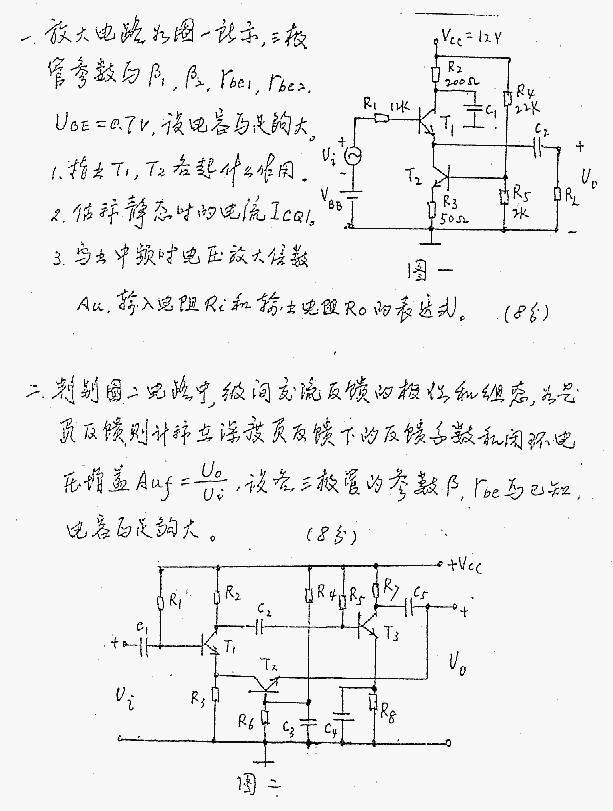 一. 放大电路如图一所示,三极
管参数为β1, β2, rbe1, rbe2.
UBE=0.7V, 设电容为足够大。
1. 指出T1, T2各起什么作用.
2. 估标静态时的电流ICQ1。
3. 写出中频时电压放大倍数
Au, 输入电阻Ri和输出电阻Ro的表达式。 (8分)
VCC=12V
R2
200Ω
C1
R4
22K
R1 12K
T1
C2
+
Ui
+
-
T2
Uo
VBB
R3
50Ω
R5
2K
RL
-
图一
二. 判别图二电路中,级间交流反馈的极性和组态,若是
负反馈则计标出深度负反馈下的反馈系数和闭环电
压增益Auf=Uo/Ui, 设各三极管的参数β, rbe为已知,
电容为足够大。 (8分)
+VCC
R1
R2
R4
R5
R7
C5
C1
C2
+
+
T1
T3
T2
Ui
R3
R6
C3
C4
R8
Uo
图二